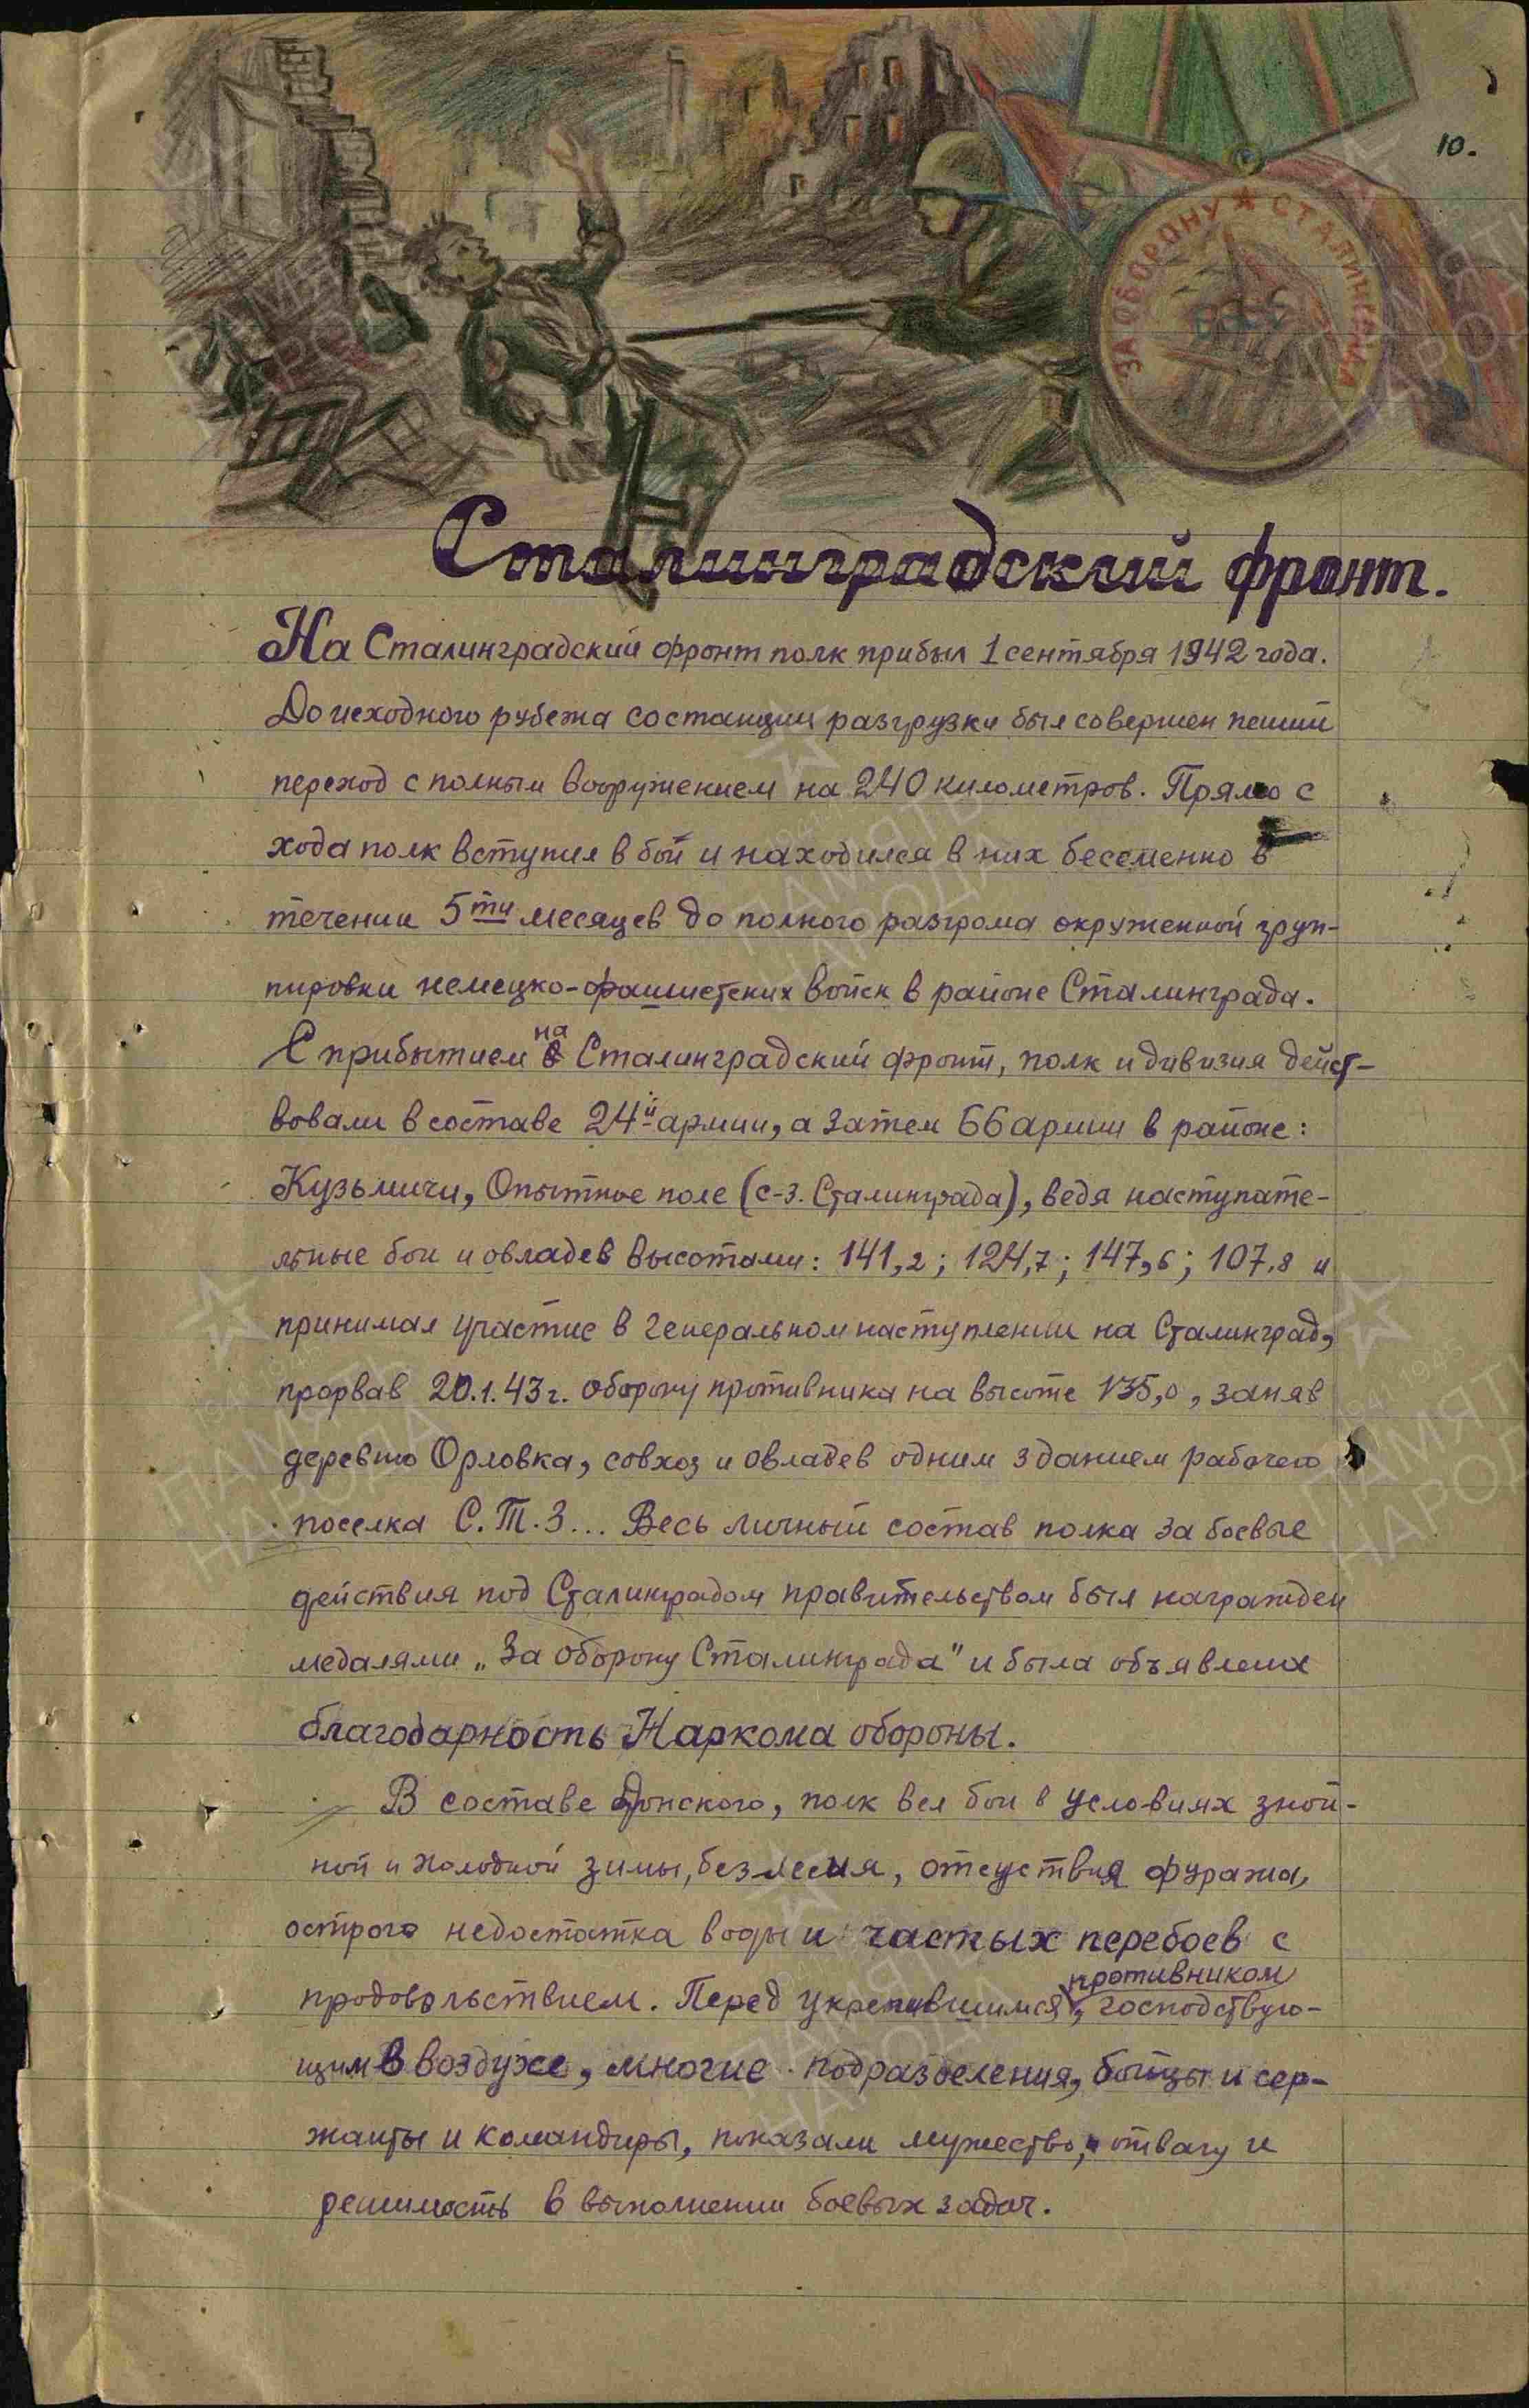 10.
ЗА ОБОРОНУ ★ СТАЛИНГРАДА
Сталинградский фронт.
На Сталинградский фронт полк прибыл 1 сентября 1942 года.
До исходного рубежа со станции разгрузки был совершен пеший
переход с полным вооружением на 240 километров. Прямо с
хода полк вступил в бой и находился в них бессменно в
течении 5ти месяцев до полного разгрома окруженной груп-
пировки немецко-фашистских войск в районе Сталинграда.
С прибытием на Сталинградский фронт, полк и дивизия дейст-
вовали в составе 24й армии, а затем 66 армии в районе:
Кузьмичи, Опытное поле (с-з. Сталинграда), ведя наступате-
льные бои и овладев высотами: 141,2; 124,7; 147,6; 107,8 и
принимал участие в генеральном наступлении на Сталинград,
прорвав 20.1.43г. оборону противника на высоте 135,0, заняв
деревню Орловка, совхоз и овладев одним зданием рабочего
поселка С.Т.З... Весь личный состав полка за боевые
действия под Сталинградом правительством был награжден
медалями „За оборону Сталинграда" и была объявлена
благодарность Наркома обороны.
В составе Донского, полк вел бои в условиях зной-
ной и холодной зимы, безлесия, отсуствия фуража,
острого недостатка воды и частых перебоев с
продовольствием. Перед укрепившимся противником, господствую-
щим в воздухе, многие подразделения, бойцы и сер-
жанты и командиры, показали мужество, отвагу и
решимость в выполнении боевых задач.
ПАМЯТЬ
НАРОДА